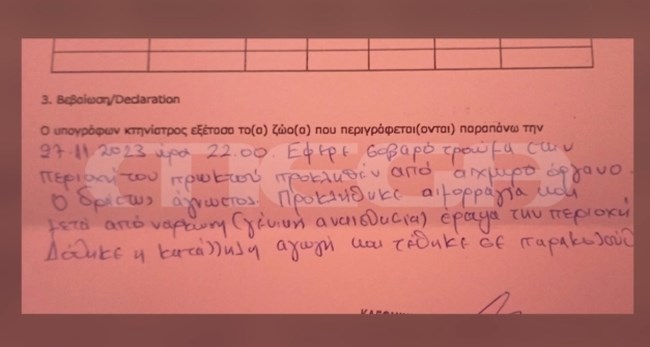 3. Βεβαίωση/Declaration
Ο υπογράφων κτηνίατρος εξέτασα το(α) ζώο(α) που περιγράφεται(ονται) παραπάνω την
27-11-2023 ώρα 22.00. Εφερε σοβαρό τραύμα στην
περιοχή του πρωκτού προκληθέν από αιχμηρό όργανο.
Ο δράστης άγνωστος. Προκλήθηκε αιμορραγία και
μετά από νάρκωση (γενική αναισθησία) έραψα την περιοχή
Δόθηκε η κατάλληλη αγωγή και τέθηκε σε